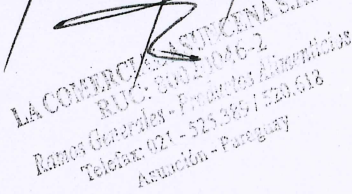 LA COMERCIAL ASUNCENA S.A.
RUC:
Ramos Generales - Productos Alimenticios
Telefax: 021 - 525.589 / 520.618
Asunción - Paraguay